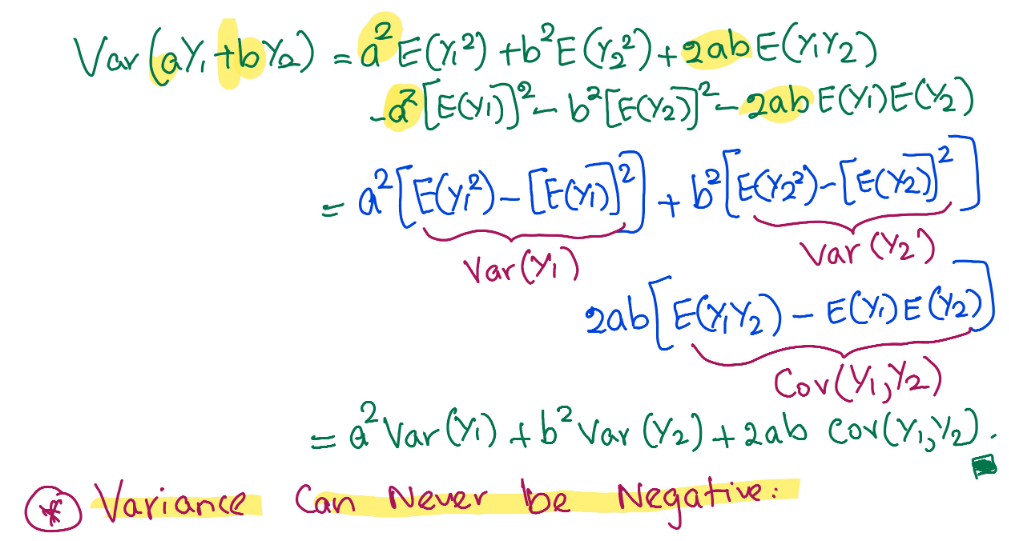 Var(aY₁+bY₂) = a²E(Y₁²) + b²E(Y₂²) + 2abE(Y₁Y₂)
-a²[E(Y₁)]² - b²[E(Y₂)]² - 2abE(Y₁)E(Y₂)
= a²[E(Y₁²) - [E(Y₁)]²] + b²[E(Y₂²) - [E(Y₂)]²]
Var(Y₁) Var(Y₂)
2ab[E(Y₁Y₂) - E(Y₁)E(Y₂)]
Cov(Y₁,Y₂)
= a²Var(Y₁) + b²Var(Y₂) + 2ab Cov(Y₁,Y₂).
* Variance Can Never be Negative: